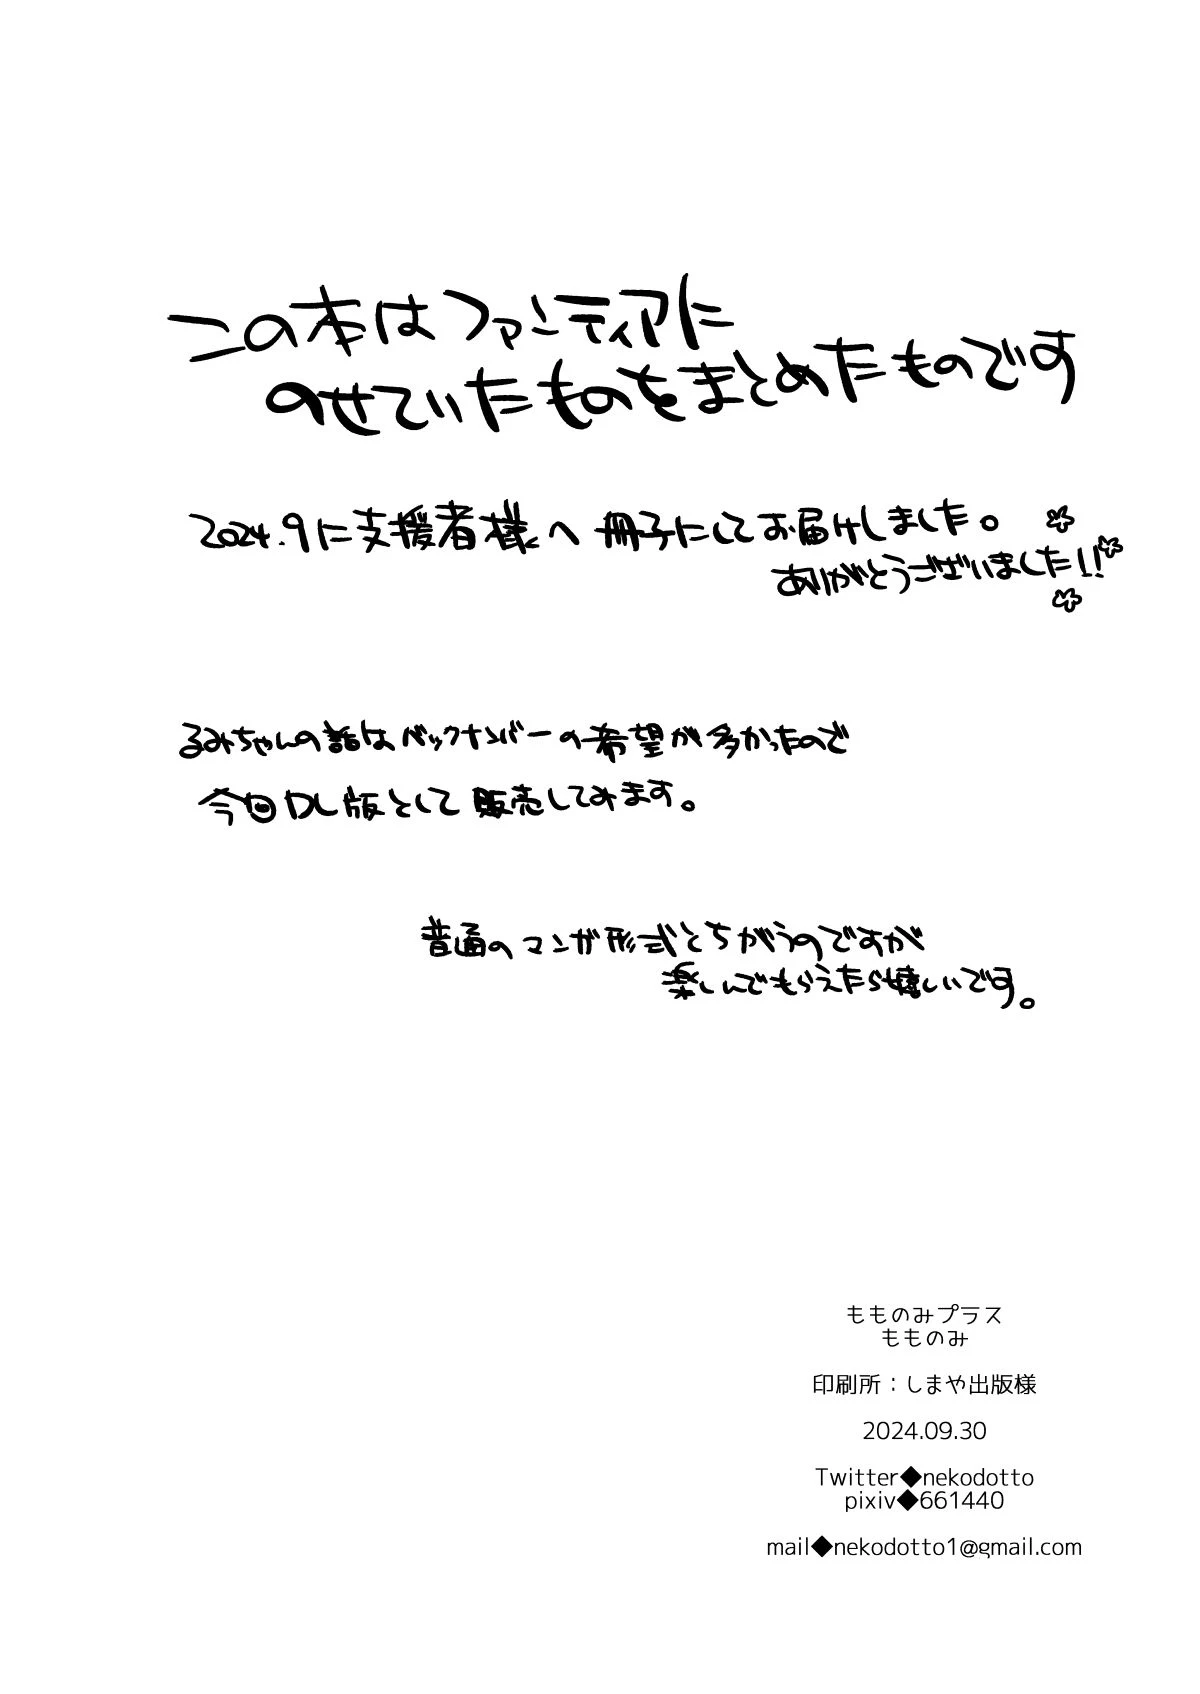 この本はファンティアに
のせていたものをまとめたものです
2024.9に支援者様へ 冊子にしてお届けしました。
ありがとうございました!!
るみちゃんの話はバックナンバーの希望が多かったので
今回DL版として販売してみます。
普通のマンガ形式とちがうのですが
楽しんでもらえたら嬉しいです。
もものみプラス
もものみ
印刷所：しまや出版様
2024.09.30
Twitter◆nekodotto
pixiv◆661440
mail◆nekodotto1@gmail.com